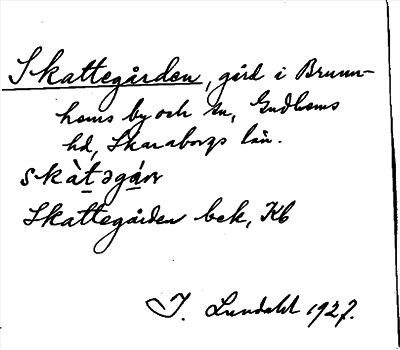 Skattegården, gård i Brunn-
hems by och sn, Gudhems
hd, Skaraborgs län.
skàt̲əgá̲ɳ
Skattegården bek, Kb
J. Lundahl 1927.